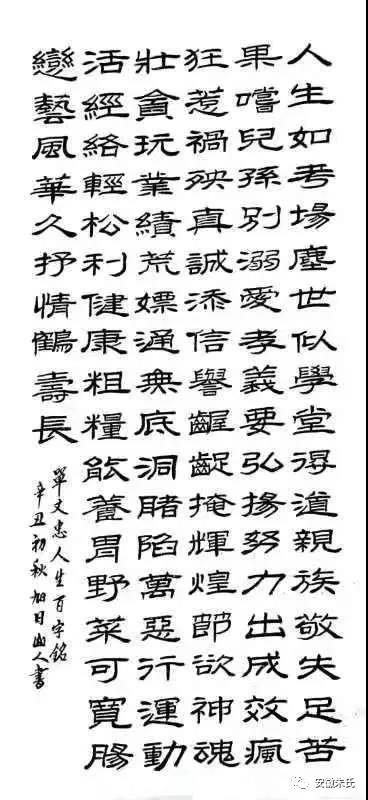 人生如考場塵世似學堂得道親族敬失足苦
果嚐兒孫別溺愛孝義要弘揚努力出成效瘋
狂惹禍殃真誠添信譽齷齪掩輝煌節欲神魂
壯貪玩業績荒嫖通無底洞賭陷萬惡行運動
活經絡輕松利健康粗糧能養胃野菜可寬腸
戀藝風華久抒情鶴壽長
單文忠人生百字銘
辛丑初秋旭日人書
安徽朱氏